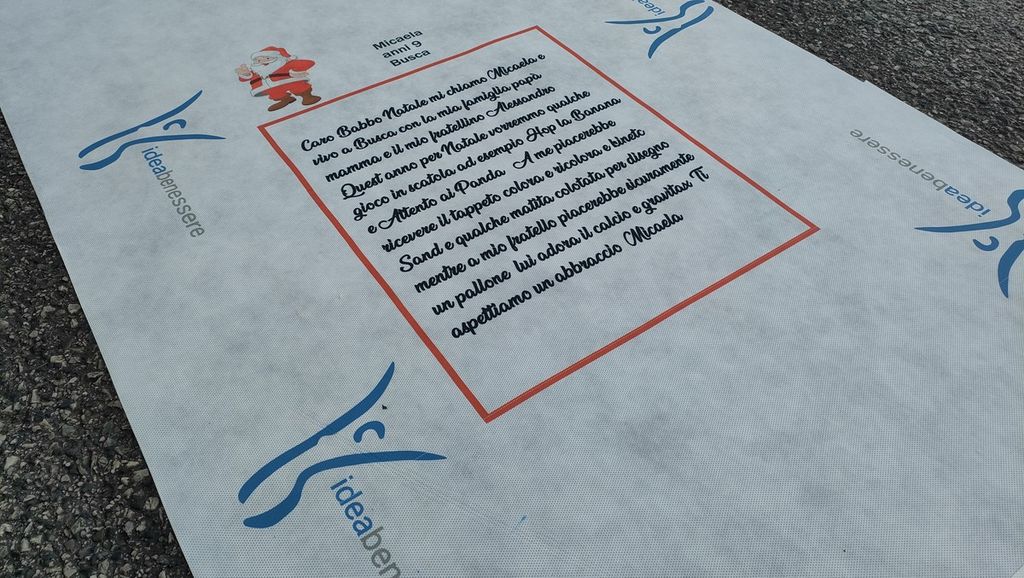 Micaela
anni 9
Busca
Caro Babbo Natale mi chiamo Micaela e
vivo a Busca con la mia famiglia papà
mamma e il mio fratellino Alessandro
Quest anno per Natale vorremmo qualche
gioco in scatola ad esempio Hop la Banana
e Attento ai Panda A me piacerebbe
ricevere il tappeto colora e ricolora e bineto
Sand e qualche matita colotata per disegno
mentre a mio fratello piacerebbe sicuramente
un pallone lui adora il calcio e gravitax Ti
aspettiamo un abbraccio Micaela
ideabenessere
ideabenessere
ideabenessere
ideaben